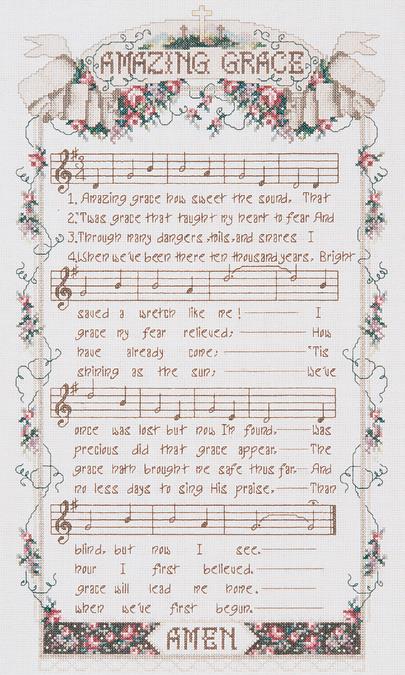 AMAZING GRACE
3
4
1. Amazing grace how sweet the sound, That
2. 'Twas grace that taught my heart to fear And
3. Through many dangers, toils, and snares I
4. When we've been there ten thousand years, Bright
saved a wretch like me! I
grace my fear relieved; How
have already come; 'Tis
shining as the sun; We've
once was lost but now I'm found, Was
precious did that grace appear, The
grace hath brought me safe thus far, And
no less days to sing His praise, Than
blind, but now I see.
hour I first believed.
grace will lead me home.
when we've first begun.
AMEN